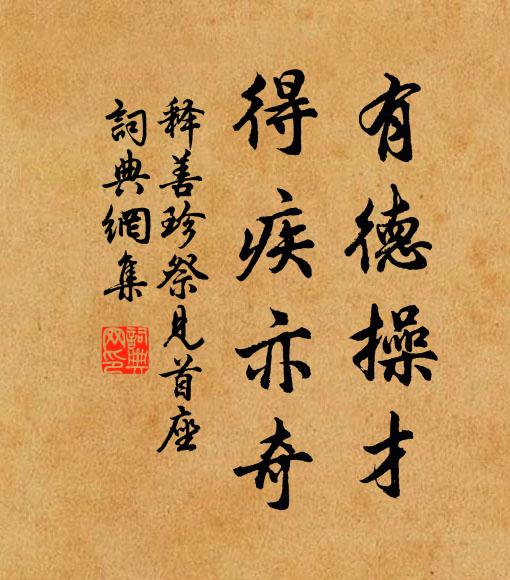 有德操才
得疾亦奇
释善珍祭見首座
詞典網集
詞典網印